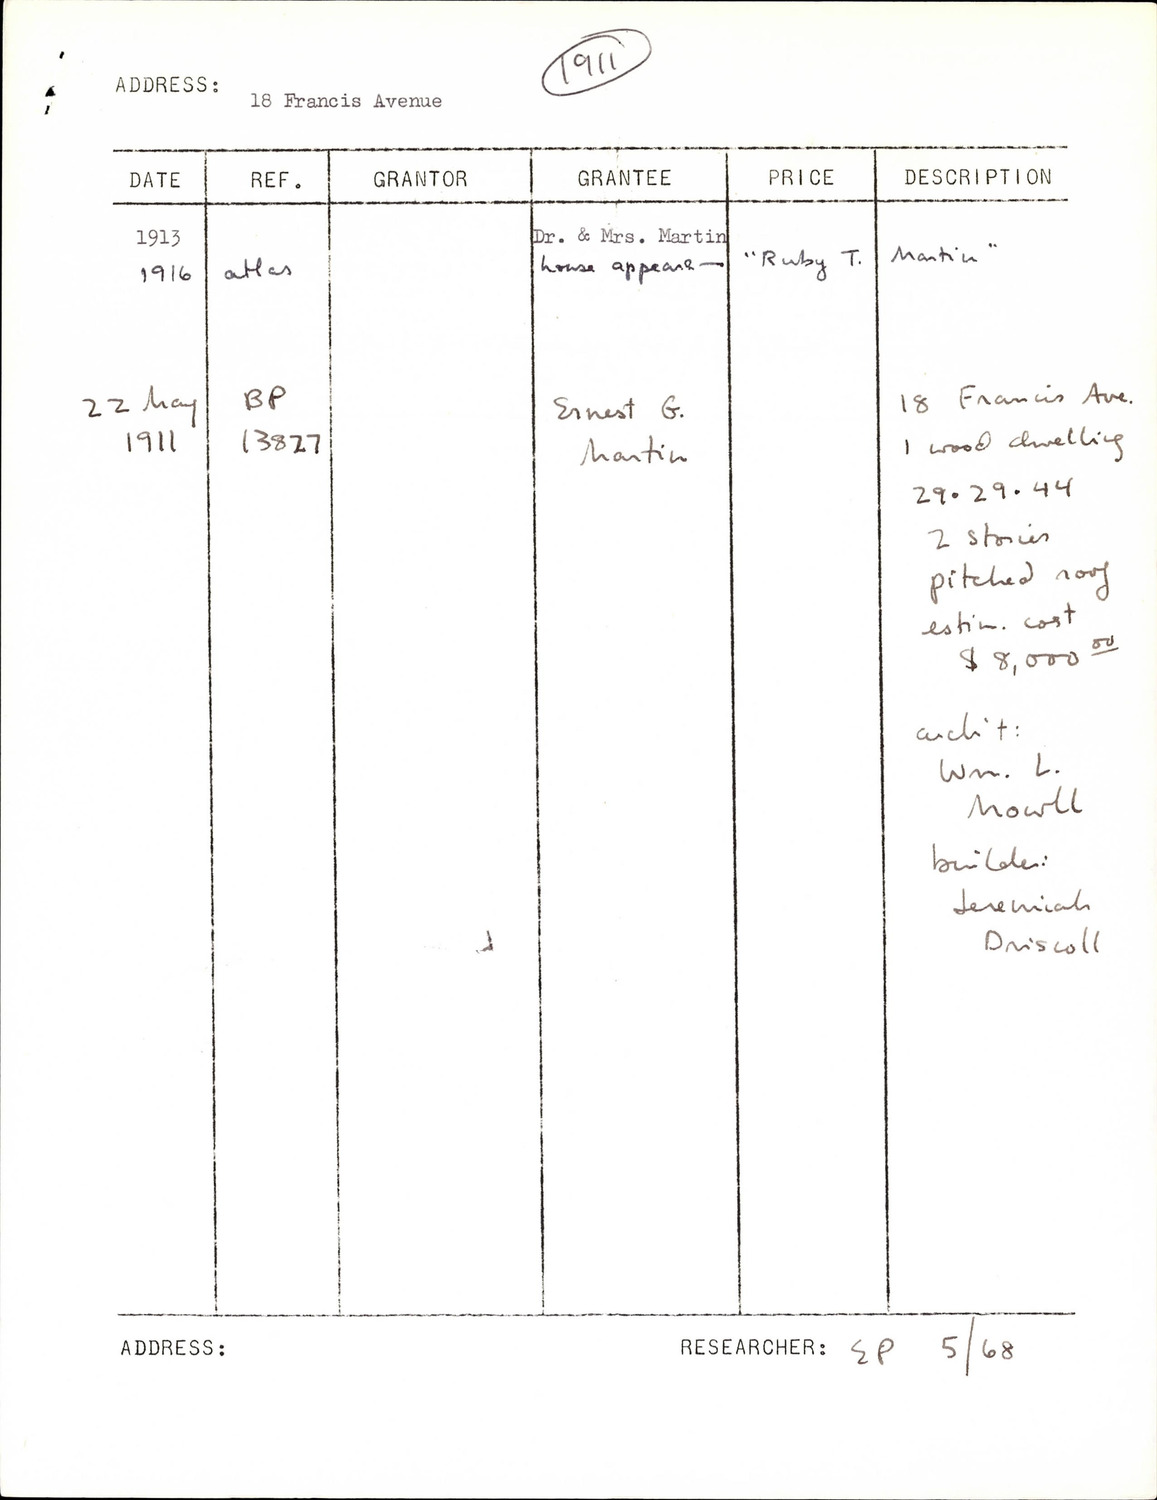 1911
ADDRESS:
18 Francis Avenue
DATE REF. GRANTOR GRANTEE PRICE DESCRIPTION
1913 Dr. & Mrs. Martin
1916 atlas house appears — "Ruby T. Martin"
22 May BP Ernest G. 18 Francis Ave.
1911 13827 Martin 1 wood dwelling
29.29.44
2 stories
pitched roof
estim. cost
$ 8,000 00
archi't:
Wm. L.
Mowll
builder:
Jeremiah
Driscoll
ADDRESS: RESEARCHER: EP 5/68